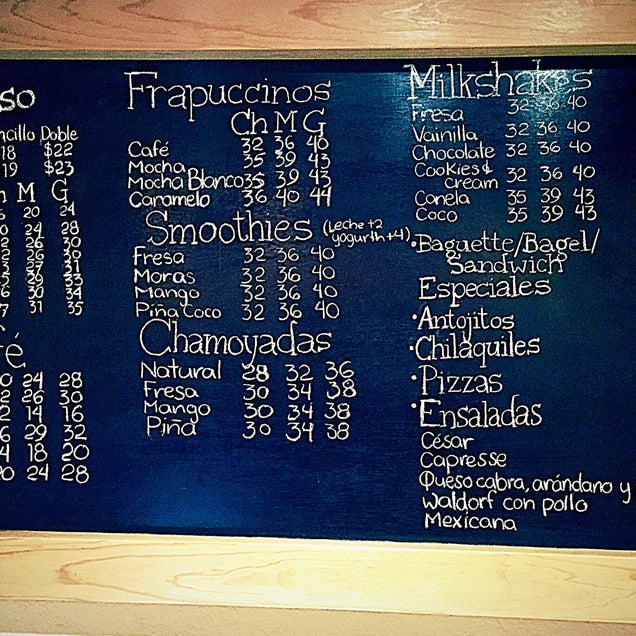 so
ncillo Doble
18 $22
19 $23
M G
20 24
24 28
26 30
26 30
27 31
29 33
30 34
31 35
fé
24 28
26 30
14 16
29 32
18 20
24 28
Frapuccinos
Ch M G
Café 32 36 40
Mocha 35 39 43
Mocha Blanco 35 39 43
Caramelo 36 40 44
Smoothies (leche +2
yogurth +4)
Fresa 32 36 40
Moras 32 36 40
Mango 32 36 40
Piña Coco 32 36 40
Chamoyadas
Natural 28 32 36
Fresa 30 34 38
Mango 30 34 38
Piña 30 34 38
Milkshakes
Fresa 32 36 40
Vainilla 32 36 40
Chocolate 32 36 40
Cookies &
cream 32 36 40
Canela 35 39 43
Coco 35 39 43
·Baguette/Bagel/
Sandwich
Especiales
·Antojitos
·Chilaquiles
·Pizzas
·Ensaladas
César
Capresse
Queso cabra, arándano y
Waldorf con pollo
Mexicana